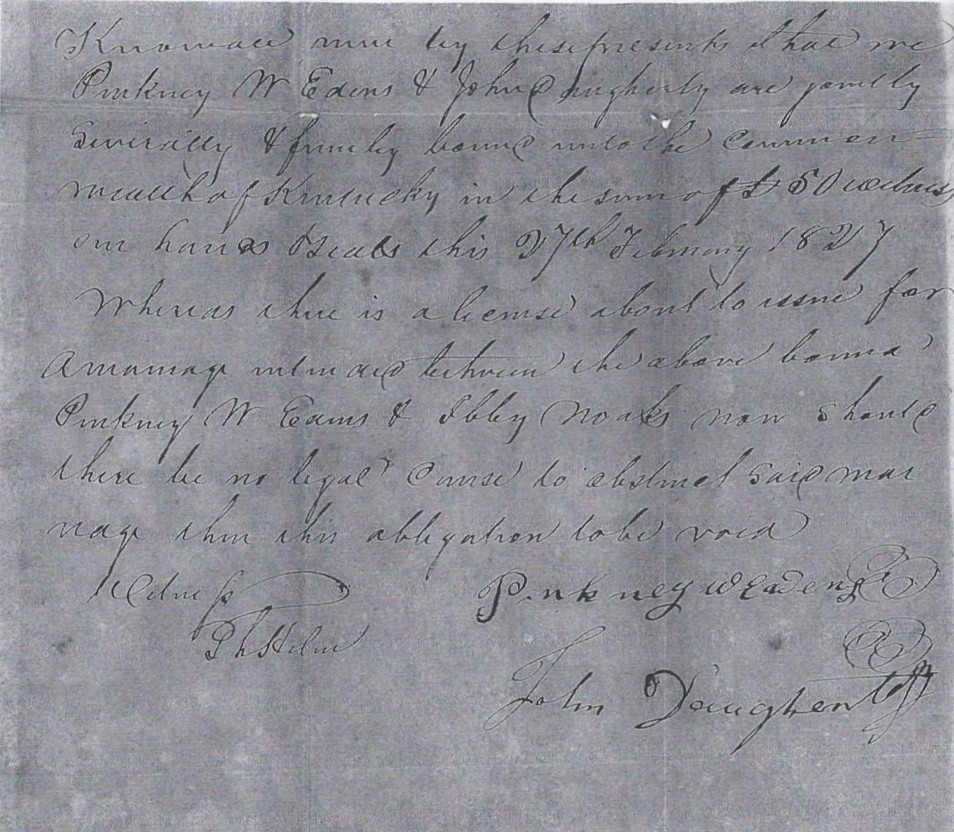 Know all men by these presents that we
Pinkney W Edens & John Daugherty are jointly
Severally & firmly bound unto the common
wealth of Kentucky in the sum of £ 50 witness
our hands & Seals this 27th February 1827
Whereas there is a license about to issue for
a marriage intended between the above bound
Pinkney W Edens & Ibby Noaks now should
there be no legal cause to obstruct said mar
riage then this obligation to be void
Witness Pinkney W Edens
John Daugherty